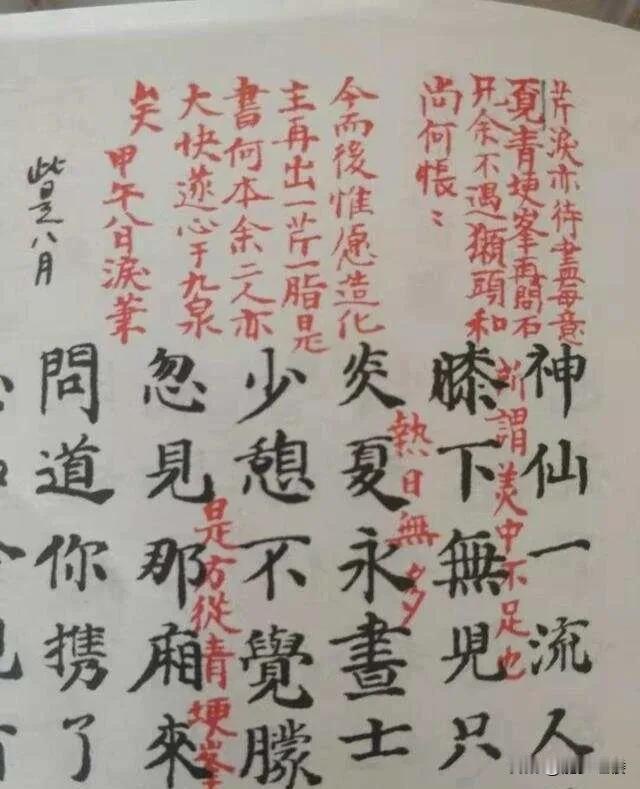 芹淚亦待盡每意
覓青埂峯再問石
兄余不遇獺頭和
尚何悵〻
今而後惟愿造化
主再出一芹一脂是
書何本余二人亦
大快遂心于九泉
矣
甲午八日淚筆
此是八月
神仙一流人
所謂美中不足也
膝下無兒只
熱日無多
炎夏永晝士
少憩不覺朦
是方從青埂峯
忽見那廂來
問道你携了